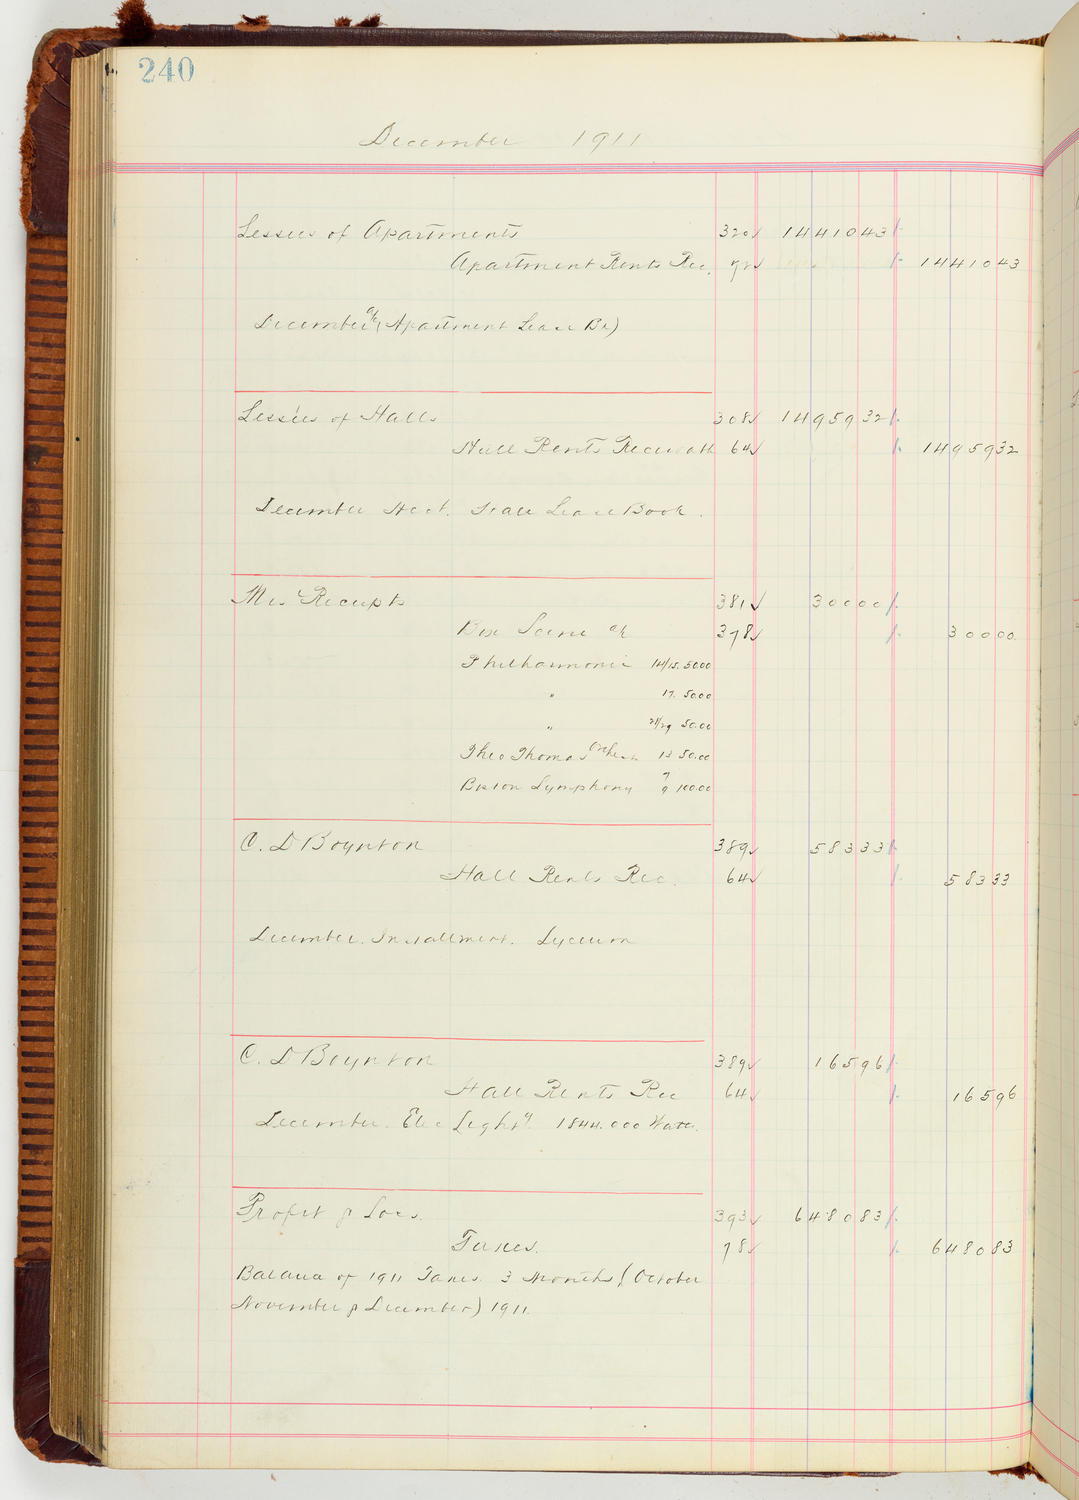 240
December 1911
Lessees of Apartments 320 ✓ 1441043
Apartment Rents Rec. 72 ✓ 1441043
December a/c (Apartment Lease Bk)
Lessees of Halls 308 ✓ 1495932
Hall Rents Receivable 64 ✓ 1495932
December Acct. Hall Lease Book.
Mis Receipts 381 ✓ 30000
Box Scene a/c 378 ✓ 30000
Philharmonic 14/15. 50.00
" 17. 50.00
" 50.00
Theo Thomas Orchestra 13 50.00
Boston Symphony 7 9 100.00
C. D Boynton 389 ✓ 58333
Hall Rents Rec. 64 ✓ 58333
December. Installment. Lyceum
C. D Boynton 389 ✓ 16596
Hall Rents Rec 64 ✓ 16596
December. Elec Light'g 1844.000 Watts.
Profit & Loss. 393 ✓ 648083
Taxes. 78 ✓ 648083
Balance of 1911 Taxes. 3 Months (October
November & December) 1911.